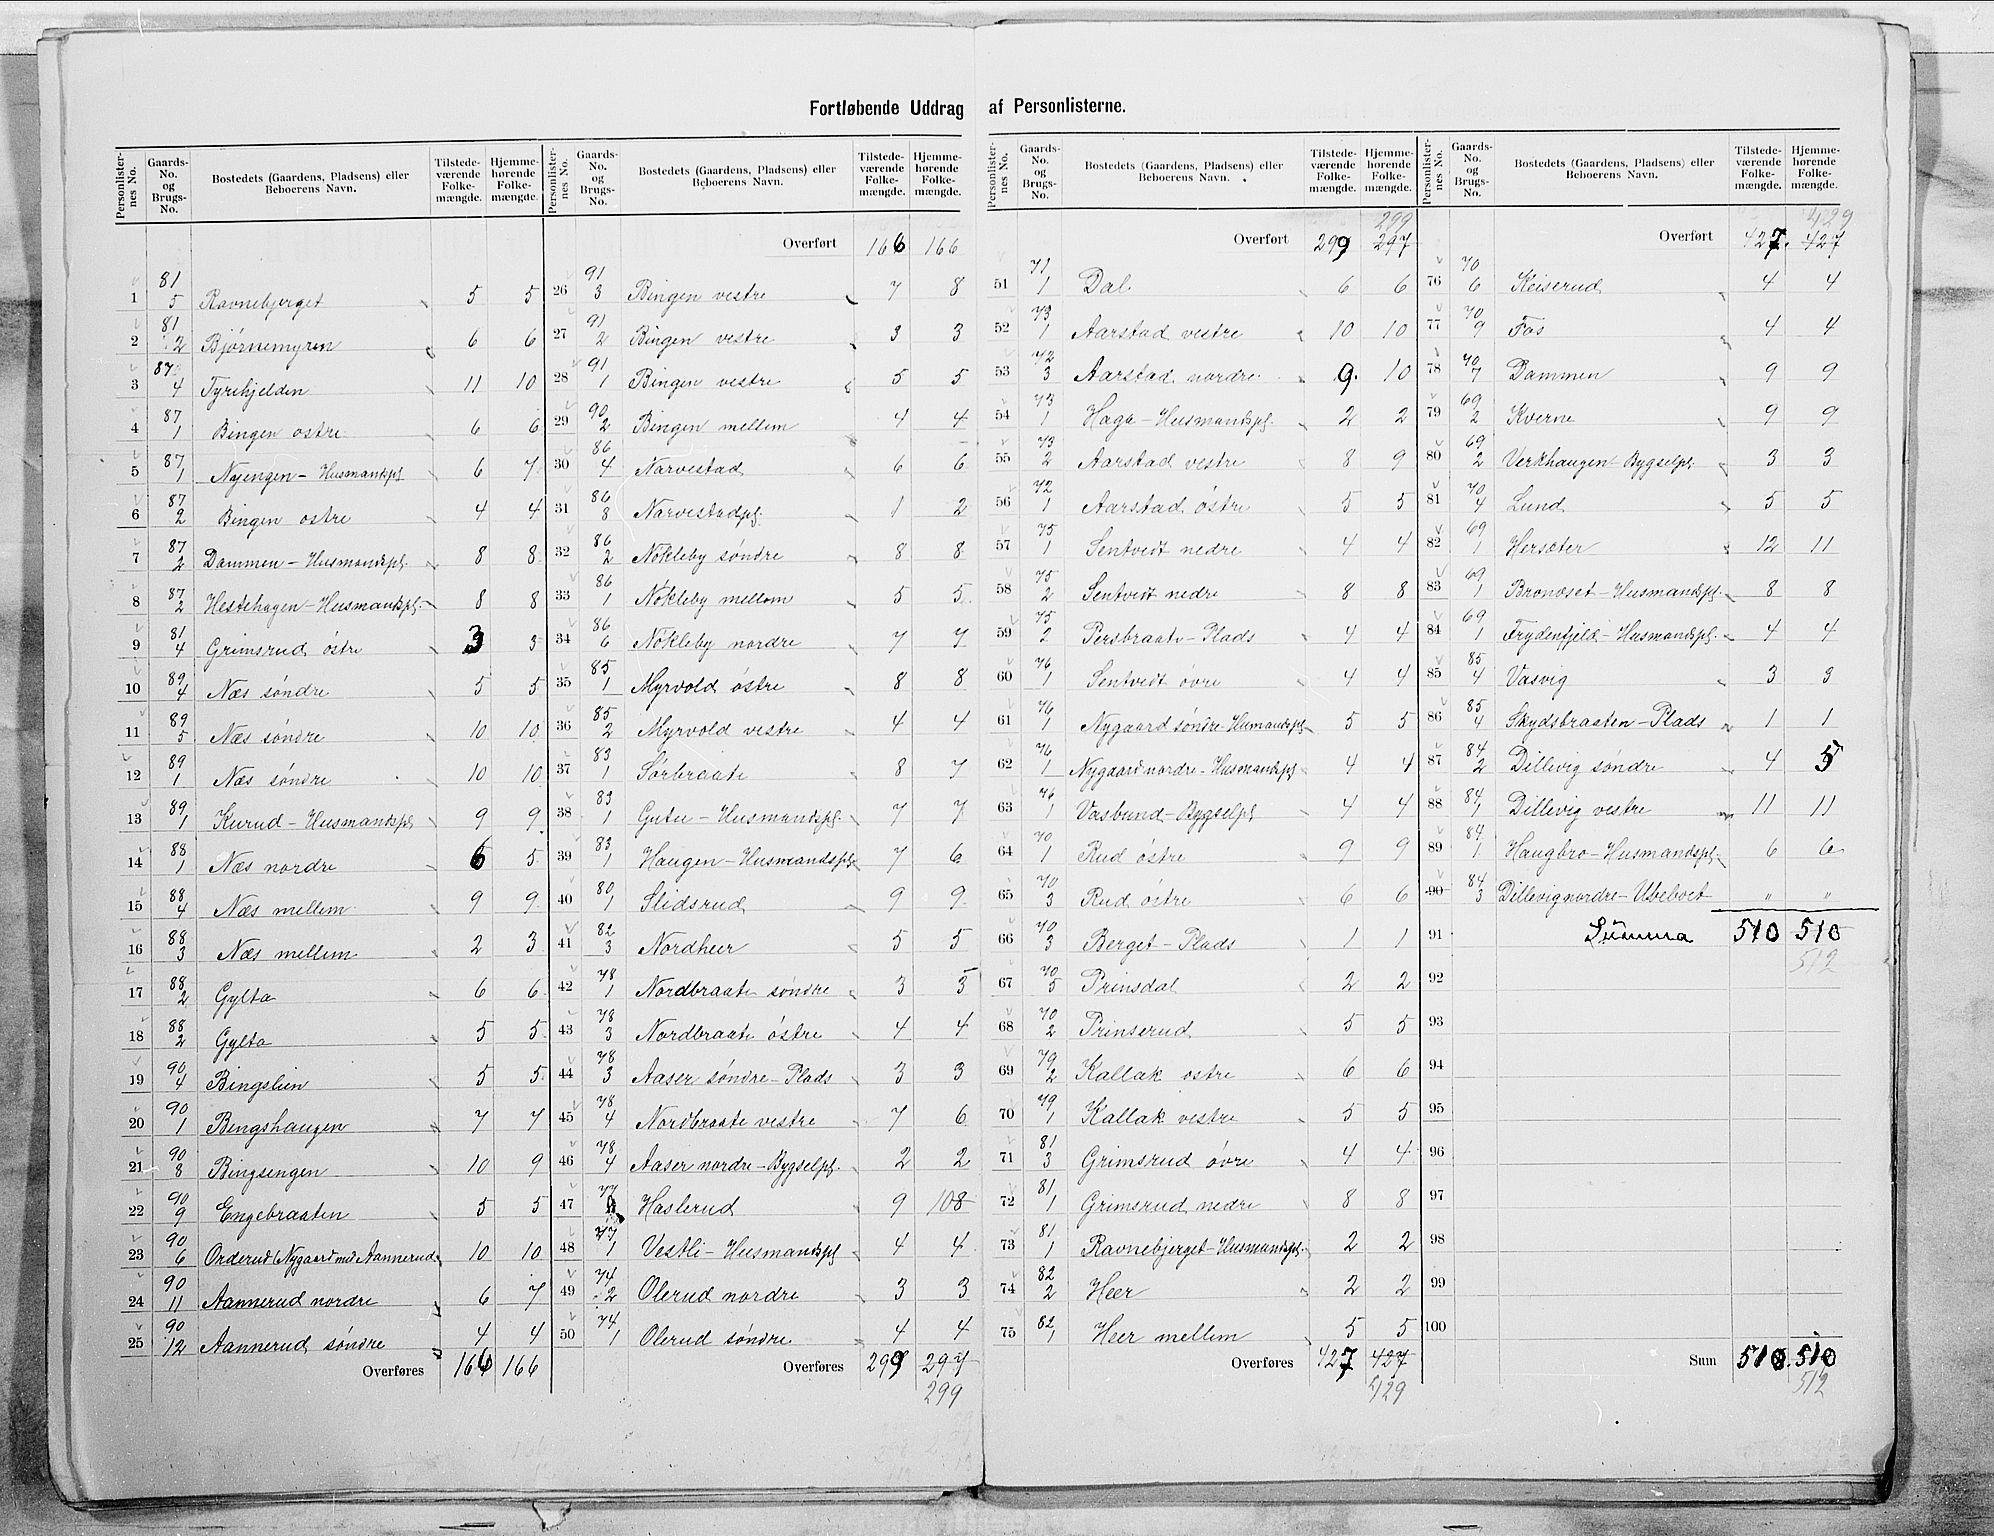 Fortløbende Uddrag af Personlisterne.
Personlister-nes No. | Gaards-No. og Brugs-No. | Bostedets (Gaardens, Pladsens) eller Beboerens Navn. | Tilstede-værende Folke-mængde. | Hjemme-hørende Folke-mængde.
1 81/5 Ravnebjerget 5 5
2 81/2 Bjørnemyren 6 6
3 87/4 Tyrihjelden 11 10
4 87/1 Bingen østre 6 6
5 87/1 Nyengen - Husmandspl. 6 7
6 87/2 Bingen østre 4 4
7 87/2 Dammen - Husmandspl. 8 8
8 87/2 Hestehagen - Husmandspl. 8 8
9 81/4 Grimsrud östre 3 3
10 89/4 Næs søndre 5 5
11 89/5 Næs søndre 10 10
12 89/1 Næs søndre 10 10
13 89/1 Kurud - Husmandspl. 9 9
14 88/1 Næs nordre 5 5
15 88/4 Næs mellem 9 9
16 88/3 Næs mellem 2 3
17 88/2 Gylta 6 6
18 88/2 Gylta 5 5
19 90/4 Bingslien 5 5
20 90/1 Bingshaugen 7 7
21 90/8 Bingsengen 10 9
22 90/9 Engebraaten 5 5
23 90/6 Orderud (Nygaard med Aannerud 10 10
24 90/11 Aannerud nordre 6 7
25 90/12 Aannerud søndre 4 4
Overføres 166 166
Personlister-nes No. | Gaards-No. og Brugs-No. | Bostedets (Gaardens, Pladsens) eller Beboerens Navn. | Tilstede-værende Folke-mængde. | Hjemme-hørende Folke-mængde.
Overført 166 166
26 91/3 Bingen vestre 7 8
27 91/2 Bingen vestre 3 3
28 91/1 Bingen vestre 5 5
29 90/2 Bingen mellem 4 4
30 86/4 Narvestad 6 6
31 86/8 Narvestadpl. 1 2
32 86/2 Nökleby söndre 8 8
33 86/1 Nökleby mellem 5 5
34 86/6 Nökleby nordre 7 7
35 85/1 Myrvold östre 8 8
36 85/2 Myrvold vestre 4 4
37 83/1 Sörbraate 8 7
38 83/1 Gutu - Husmandspl. 7 7
39 83/1 Haugen - Husmandspl. 7 6
40 80/1 Slidsrud 9 9
41 82/3 Nordheer 5 5
42 78/1 Nordbraate söndre 3 3
43 78/3 Nordbraate östre 4 4
44 78/3 Aaser søndre - Plads 3 3
45 78/4 Nordbraate vestre 7 6
46 78/4 Aaser nordre - Bygselpl. 2 2
47 77 Haslerud 9 108
48 77/1 Vestli - Husmandspl. 4 4
49 74/2 Olerud nordre 3 3
50 74/1 Olerud søndre 4 4
Overføres 299 297
299
Personlister-nes No. | Gaards-No. og Brugs-No. | Bostedets (Gaardens, Pladsens) eller Beboerens Navn. | Tilstede-værende Folke-mængde. | Hjemme-hørende Folke-mængde.
299
Overført 299 297
51 71/1 Dal 6 6
52 73/1 Aarstad vestre 10 10
53 72/3 Aarstad nordre 9 10
54 73/1 Haga - Husmandspl. 2 2
55 73/2 Aarstad vestre 8 9
56 72/1 Aarstad östre 5 5
57 75/1 Sentvedt nedre 4 4
58 75/2 Sentvedt nedre 8 8
59 75/2 Persbraate - Plads 4 4
60 76/1 Sentvedt övre 4 4
61 76/1 Nygaard søndre - Husmandspl. 5 5
62 76/1 Nygaard nordre - Husmandspl. 4 4
63 76/1 Vasbund - Bygselpl. 4 4
64 70/1 Rud östre 9 9
65 70/3 Rud östre 6 6
66 70/3 Berget - Plads 1 1
67 70/5 Prinsdal 2 2
68 70/2 Prinserud 5 5
69 79/2 Kallak østre 6 6
70 79/1 Kallak vestre 5 5
71 81/3 Grimsrud övre 4 4
72 81/1 Grimsrud nedre 8 8
73 81/1 Ravnebjerget - Husmandspl. 2 2
74 82/2 Heer 2 2
75 82/1 Heer mellem 5 5
Overføres 427 427
429
Personlister-nes No. | Gaards-No. og Brugs-No. | Bostedets (Gaardens, Pladsens) eller Beboerens Navn. | Tilstede-værende Folke-mængde. | Hjemme-hørende Folke-mængde.
429
Overført 427 427
76 70/6 Keiserud 4 4
77 70/9 Fos 4 4
78 70/7 Dammen 9 9
79 69/2 Kverne 9 9
80 69/2 Verkhaugen - Bygselpl. 3 3
81 70/4 Lund 5 5
82 69/1 Hersæter 12 11
83 69/1 Bronæset - Husmandspl. 8 8
84 69/1 Frydenfjeld - Husmandspl. 4 4
85 85/4 Vasvig 3 3
86 85/4 Skydsbraaten - Plads 1 1
87 84/2 Dillevig søndre 4 5
88 84/1 Dillevig vestre 11 11
89 84/1 Haugbro - Husmandspl. 6 6
90 84/3 Dillevig nordre - Ubeboet " "
91 Summa 510 510
512
92
93
94
95
96
97
98
99
100
Sum 510 510
512